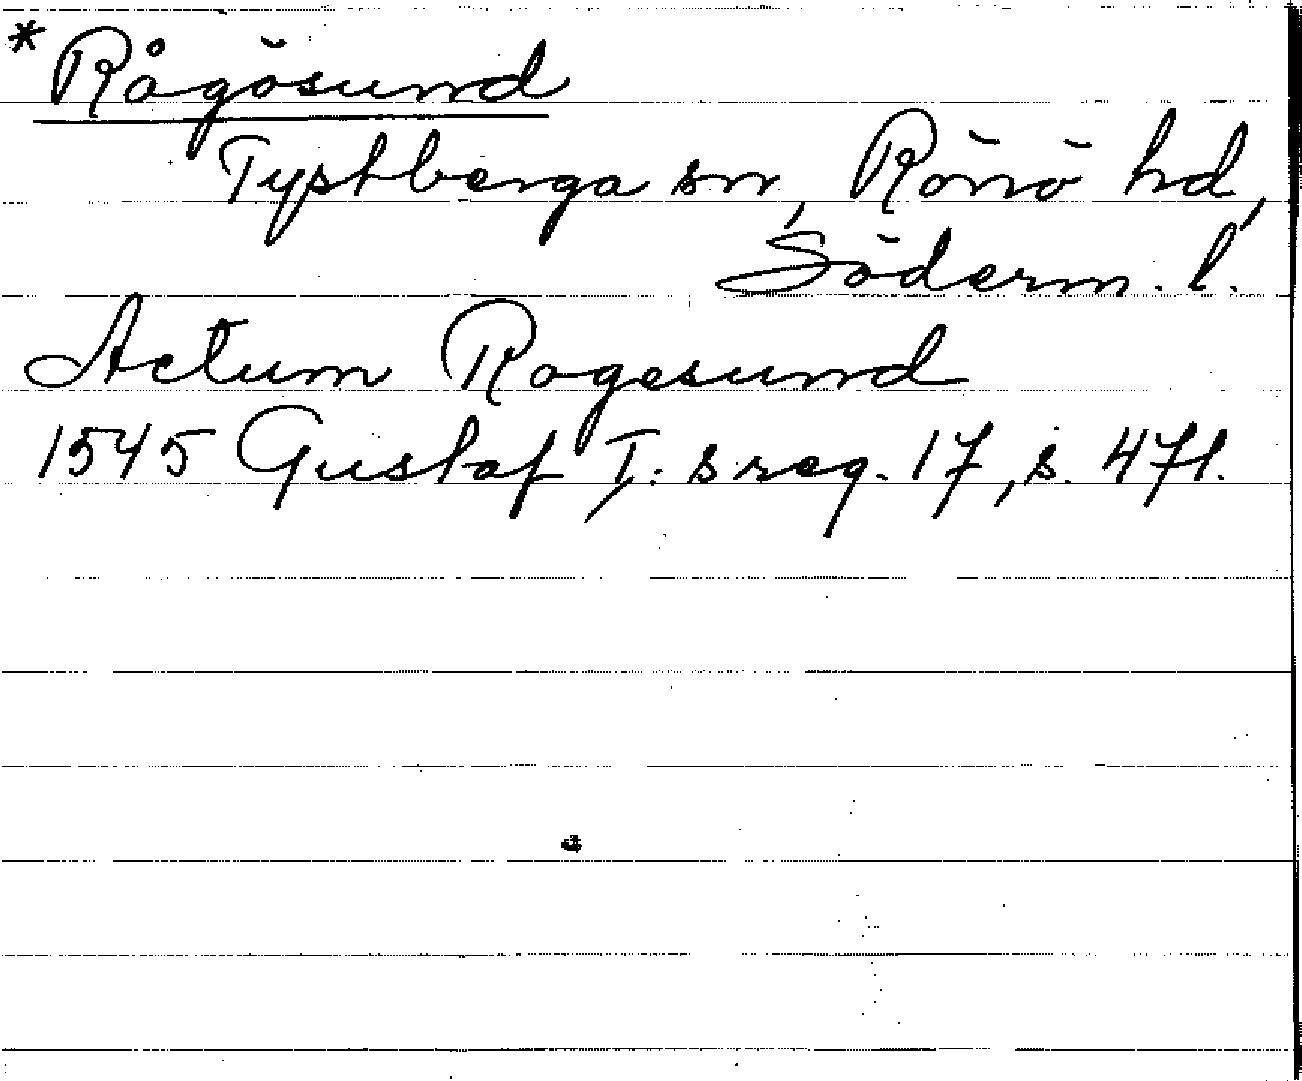 * Rågösund
Tystberga sn, Rönö hd,
Söderm. l.
Actum Rogesund
1545 Gustaf I:s reg. 17, s. 471.